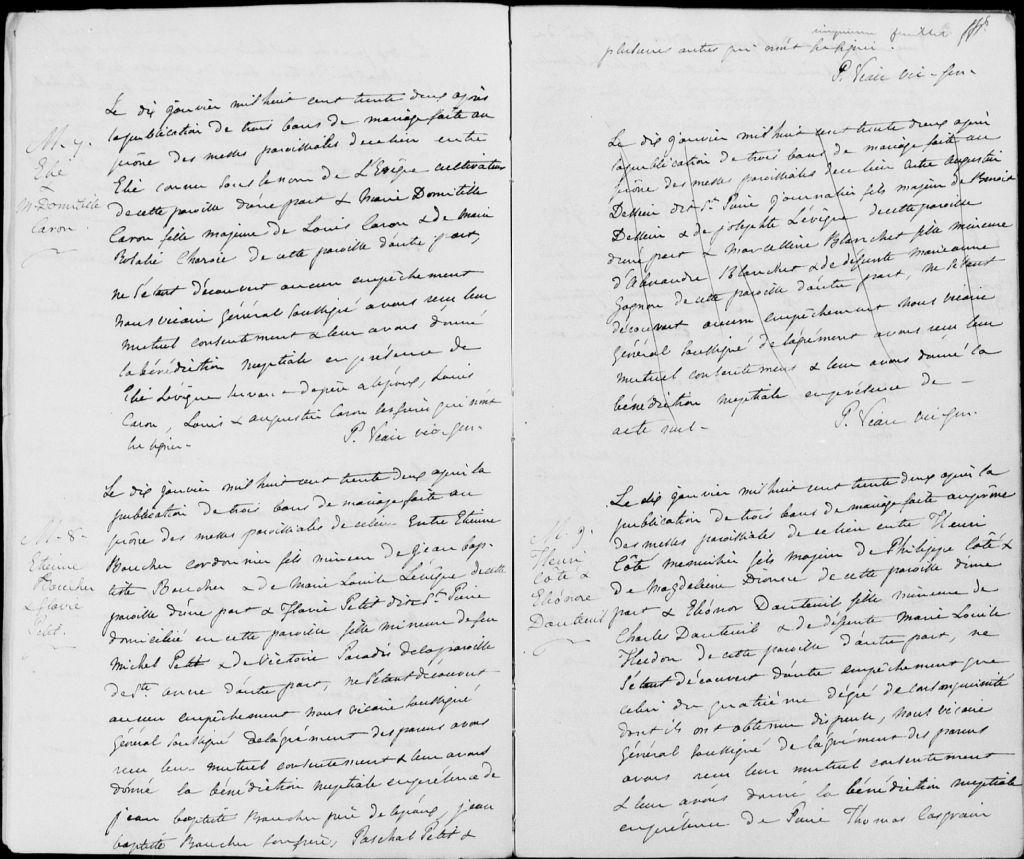 M. 7.
Elie
&
M. Domitille
Caron.
Le dix janvier mil huit cent trente deux après
la publication de trois bans de mariage faite au
prône des messes paroissiales de ce lieu entre
Elie connu sous le nom de L'Evêque cultivateur
de cette paroisse d'une part & Marie Domitille
Caron fille majeure de Louis Caron & de Marie
Rosalie de cette paroisse d'autre part,
ne s'étant découvert aucun empêchement
nous vicaire général soussigné avons reçu leur
mutuel consentement & leur avons donné
la bénédiction nuptiale en présence de
Elie Lévêque servant de père à l'époux, Louis
Caron, Louis & augustin Caron ses frères qui n'ont
su signer.
P. Viau vic-gen-
M. 8.
Etienne
Boucher
& Flavie
Petit.
Le dix janvier mil huit cent trente deux après la
publication de trois bans de mariage faite au
prône des messes paroissiales de ce lieu Entre Etienne
Boucher cordonnier fils mineur de jean bap-
tiste Boucher & de Marie Louise Lévêque de cette
paroisse d'une part & Flavie Petit dite St. Pierre
domiciliée en cette paroisse fille mineure de feu
Michel Petit & de Victoire Paradis de la paroisse
de Ste anne d'autre part, ne s'étant découvert
aucun empêchement nous vicaire soussigné
général soussigné de l'agrément des parens avons
reçu leur mutuel consentement & leur avons
donné la bénédiction nuptiale en présence de
jean baptiste Boucher père de l'époux, jean
baptiste Boucher son frère, Paschal Petit &
feuillet
plusieurs autres qui n'ont su signer.
P. Viau vic-gen-
Le dix janvier mil huit cent trente deux après
la publication de trois bans de mariage faite au
prône des messes paroissiales de ce lieu entre augustin
Dessein dit St. Pierre journalier fils majeur de Benoit
Dessein & de josephte Lévêque de cette paroisse
d'une part & Marcelline Blanchet fille mineure
d'Alexandre Blanchet & de défunte marianne
Gagnon de cette paroisse d'autre part, ne s'étant
découvert aucun empêchement nous vicaire
général soussigné de l'agrément avons reçu leur
mutuel consentement & leur avons donné la
bénédiction nuptiale en présence de -
acte nul-
P. Viau vic-gen-
M. 9.
Henri
Côté &
Eléonore
Dauteuil
Le dix janvier mil huit cent trente deux après la
publication de trois bans de mariage faite au prône
des messes paroissiales de ce lieu entre Henri
Côté menuisier fils majeur de Philippe Côté &
de Magdeleine Dionne de cette paroisse d'une
part & Eléonor Dauteuil fille mineure de
Charles Dauteuil & de défunte Marie Louise
Hudon de cette paroisse d'autre part, ne
s'étant découvert d'autre empêchement que
celui du quatrième dégré de consanguinité
dont ils ont obtenu dispense, nous vicaire
général soussigné de l'agrément des parens
avons reçu leur mutuel consentement
& leur avons donné la bénédiction nuptiale
en présence de Pierre Thomas Casgrain